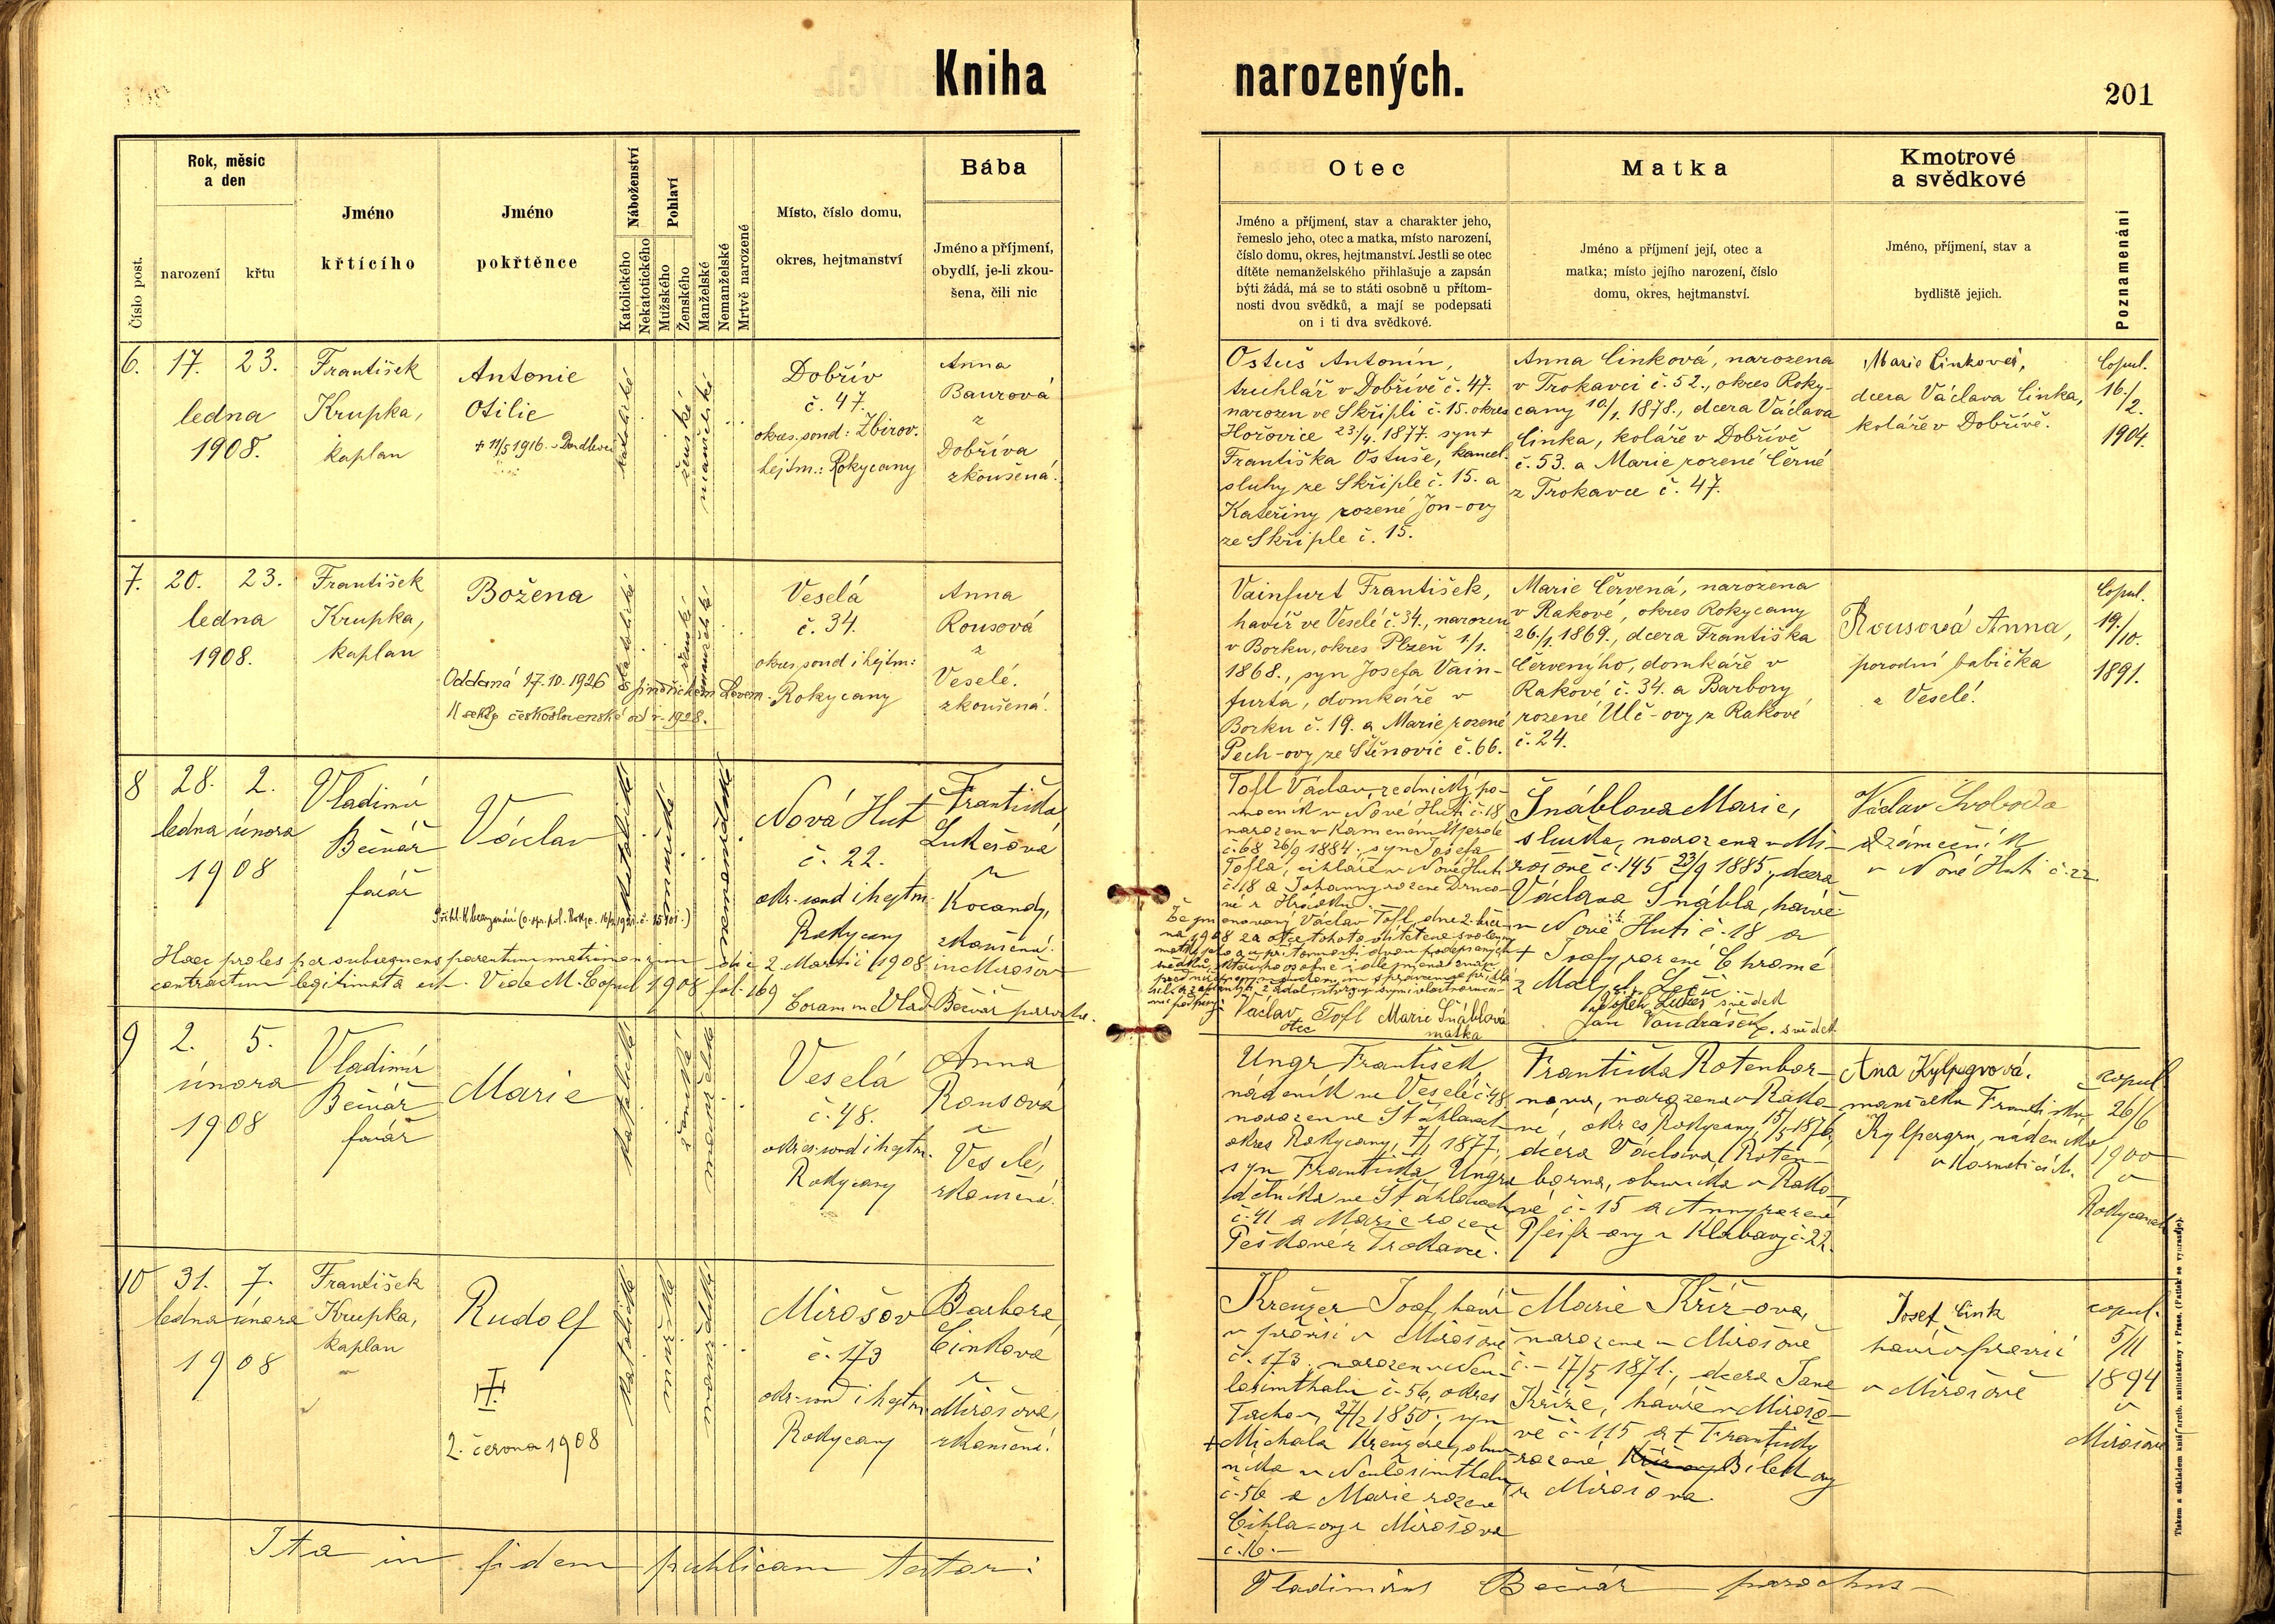 Kniha narozených.
201
Číslo post.
Rok, měsíc
a den
narození
křtu
Jméno
křtícího
Jméno
pokřtěnce
Náboženství
Katolického
Nekatolického
Pohlaví
Mužského
Ženského
Manželské
Nemanželské
Mrtvě narozené
Místo, číslo domu,
okres, hejtmanství
Bába
Jméno a příjmení,
obydlí, je-li zkou-
šena, čili nic
Otec
Jméno a příjmení, stav a charakter jeho,
řemeslo jeho, otec a matka, místo narození,
číslo domu, okres, hejtmanství. Jestli se otec
dítěte nemanželského přihlašuje a zapsán
býti žádá, má se to státi osobně u přítom-
nosti dvou svědků, a mají se podepsati
on i ti dva svědkové.
Matka
Jméno a příjmení její, otec a
matka; místo jejího narození, číslo
domu, okres, hejtmanství.
Kmotrové
a svědkové
Jméno, příjmení, stav a
bydliště jejich.
Poznamenání
6. 17. 23.
ledna
1908.
František
Krupka,
kaplan
Antonie
Otilie
+ 11/5 1916
katolické
ženské
manželské
Dobřív
č. 47.
okres. soud: Zbirov.
hejtm.: Rokycany
Anna
Baurová
z
Dobříva
zkoušená.
Ostuš Antonín,
truhlář v Dobřívě č. 47.
narozen ve Skřipli č. 15. okres
Hořovice 23/4. 1877. syn +
Františka Ostuše, kancel.
sluhy ze Skřiple č. 15. a
Kateřiny rozené Jon-ovy
ze Skřiple č. 15.
Anna Cinková, narozena
v Trokavci č. 52., okres Roky-
cany 10/1. 1878., dcera Václava
Cinka, koláře v Dobřívě
č. 53. a Marie rozené Černé
z Trokavce č. 47.
Marie Cinková,
dcera Václava Cinka,
koláře v Dobřívě.
Copul.
16./2.
1904.
7. 20. 23.
ledna
1908.
František
Krupka,
kaplan
Božena
Oddaná 27.10.1926 s Jindřichem Lovem.
K sektě československé od r. 1928.
katolické
ženské
manželské
Veselá
č. 34.
okres. soud i hejtm:
Rokycany
Anna
Rousová
z
Veselé.
zkoušená.
Vainfurt František,
havíř ve Veselé č. 34., narozen
v Borku, okres Plzeň 1/1.
1868., syn Josefa Vain-
furta, domkáře v
Borku č. 19. a Marie rozené
Pech-ovy ze Štěnovic č. 66.
Marie Červená, narozena
v Rakové, okres Rokycany
26./1. 1869., dcera Františka
Červenýho, domkáře v
Rakové č. 34. a Barbory
rozené Ulč-ovy z Rakové
č. 24.
Rousová Anna,
porodní babička
z Veselé.
Copul.
19./10.
1891.
8 28. 2.
ledna února
1908
Vladimír
Bečvář
farář
Václav
katolické
mužské
nemanželské
Nová Huť
č. 22.
okr. soud i hejtm.
Rokycany
Františka
Lukešová
z
Kocandy,
zkoušená.
Haec proles per subsequens parentum matrimonium die 2. Martii 1908 in Mirošov
contractum legitimata est. Vide M. Copul. 1908 fol. 169
Coram me Vlad. Bečvář parocho.
Tofl Václav, zednický po-
mocník v Nové Huti č. 18
narozen v Kamenném Újezdě
č. 68 26/9 1884., syn Josefa
Tofla, cihláře v Nové Huti
č. 18 a Johanny rozené
Václav Tofl
otec
Marie Šnáblová
matka
Šnáblova Marie,
služka, narozena v Mi-
rošově č. 145 23/9 1885., dcera
Václava Šnábla, havíře
v Nové Huti č. 18 a
+ Josefy rozené Chromé
Vojtěch Lukeš svědek
Jan Vondrášek. svědek
Václav Svoboda
zámečník
v Nové Huti č. 22
9 2. 5.
února
1908
Vladimír
Bečvář
farář
Marie
katolické
ženské
manželské
Veselá
č. 48.
okres. soud i hejtm.
Rokycany
Anna
Rousová
z
Veselé,
zkoušená.
Ungr František,
nádeník ve Veselé č. 48
narozen ve Šťáhlavech
okres Rokycany, 7/1 1877.,
syn Františka Ungra
ve Šťáhlavech
č. 41 a Marie rozené
Peškové z Trokavce.
Františka Rotenbor-
nova, narozena v Rako-
vé, okres Rokycany, 15/5 1876.,
dcera Václava Roten-
borna, obuvníka v Rako-
vé č. 15 a Anny rozené
Pfeifr-ovy z Klabavy č. 22.
Ana Kylpegrová.
manželka Františka
Kylpergra, nádeníka
v Kornaticích.
copul.
26/6
1900
v
Rokycanech
10 31. 7.
ledna února
1908
František
Krupka,
kaplan
Rudolf
2. června 1908
katolické
mužské
manželské
Mirošov
č. 173
okr. soud i hejtm.
Rokycany
Barbora
Cinkova
z
Mirošova,
zkoušená.
Kreuzer Josef, havíř
v Mirošově
č. 173. narozen v Neu-
losimthalu č. 56, okres
Tachov, 27/2 1850., syn
+ Michala Kreuzera, obuv-
níka v Neulosimthalu
č. 56 a Marie rozené
Cihla-ovy z Mirošova
č. 16.
Marie Kříž-ova,
narozena v Mirošově
č. - 17/5 1871., dcera Jana
Kříže, havíře v Mirošo-
vě č. 115 a + Františky
rozené Bílek-ovy
z Mirošova.
Josef Cink
havíř
v Mirošově
copul.
5/11
1894
v
Mirošově
Ita in fidem publicam testor:
Vladimirus Bečvář parochus